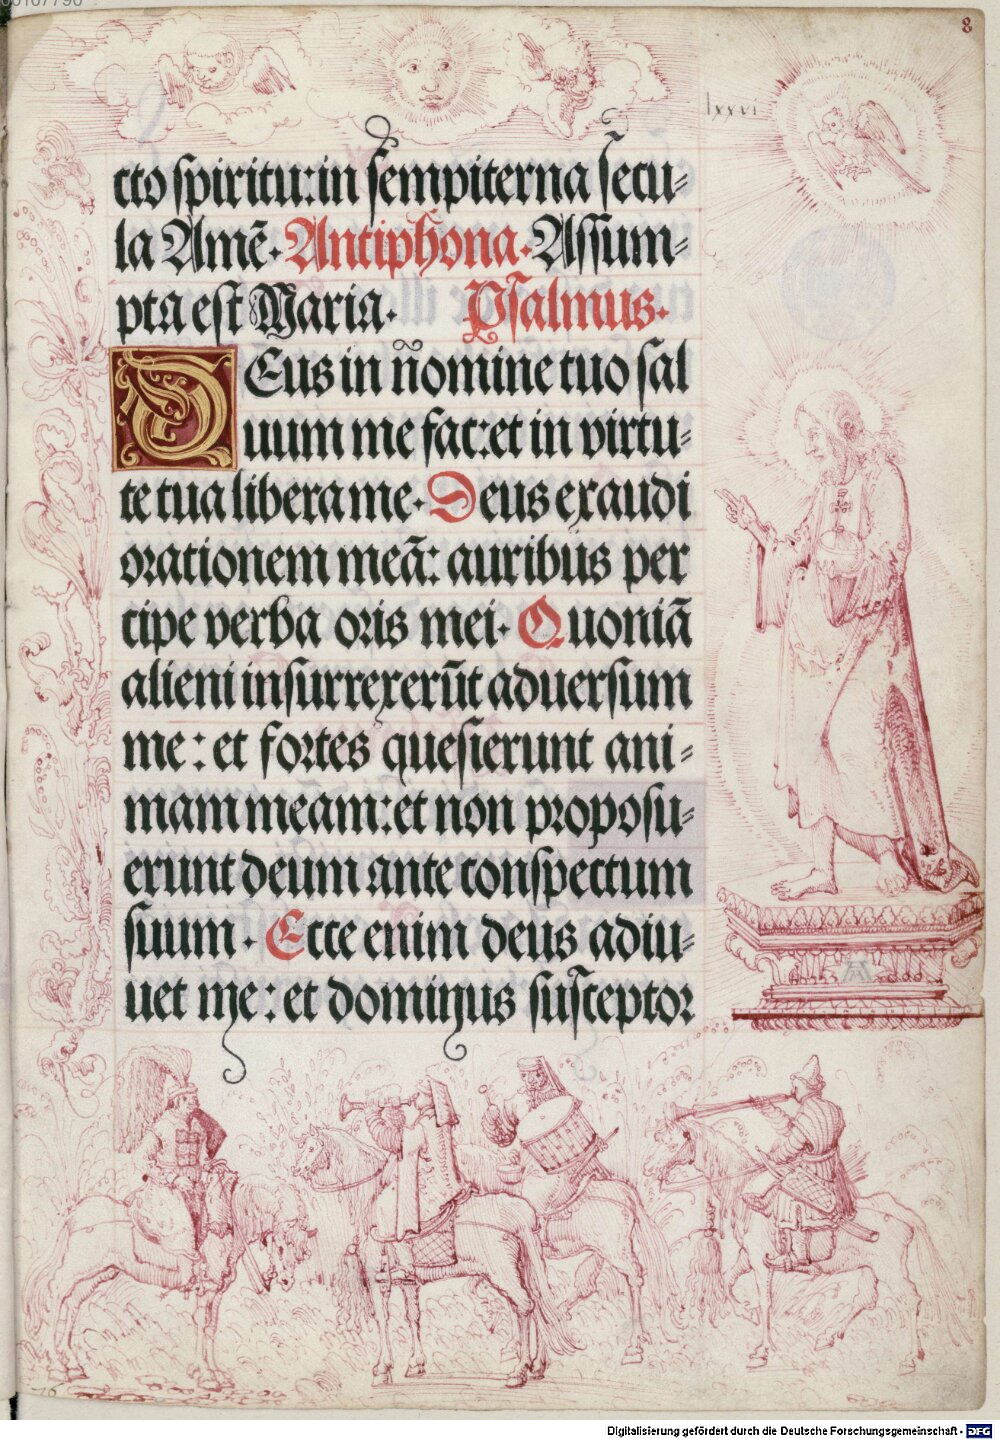 00107790
8
lxxvi
cto spiritu: in sempiterna secu=
la Amē. Antiphona. Assum=
pta est Maria. Psalmus.
DEus in nomine tuo sal
uum me fac: et in virtu=
te tua libera me. Deus exaudi
orationem meā: auribus per
cipe verba oris mei. Quoniā
alieni insurrexerūt aduersum
me: et fortes quesierunt ani=
mam meam: et non proposu=
erunt deum ante conspectum
suum. Ecce enim deus adiu=
uet me: et dominus susceptor
AD
76
Digitalisierung gefördert durch die Deutsche Forschungsgemeinschaft - DFG